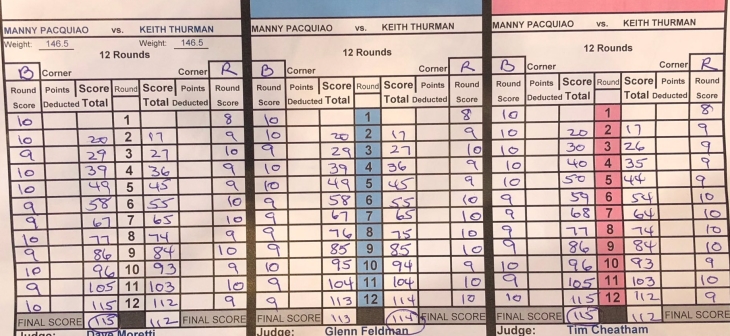 MANNY PACQUIAO vs. KEITH THURMAN
Weight: 146.5 Weight: 146.5
12 Rounds
B Corner Corner R
Round Points Score Round Score Points Round
Score Deducted Total Total Deducted Score
10 1 8
10 20 2 17 9
9 29 3 27 10
10 39 4 36 9
10 49 5 45 9
9 58 6 55 10
9 67 7 65 10
10 77 8 74 9
9 86 9 84 10
10 96 10 93 9
9 105 11 103 10
10 115 12 112 9
FINAL SCORE 115 112 FINAL SCORE
Judge: Dave Moretti
MANNY PACQUIAO vs. KEITH THURMAN
12 Rounds
B Corner Corner R
Round Points Score Round Score Points Round
Score Deducted Total Total Deducted Score
10 1 8
10 20 2 17 9
9 29 3 27 10
10 39 4 36 9
10 49 5 45 9
9 58 6 55 10
9 67 7 65 10
9 76 8 75 10
9 85 9 85 10
10 95 10 94 9
9 104 11 104 10
9 113 12 114 10
FINAL SCORE 113 114 FINAL SCORE
Judge: Glenn Feldman
MANNY PACQUIAO vs. KEITH THURMAN
12 Rounds
B Corner Corner R
Round Points Score Round Score Points Round
Score Deducted Total Total Deducted Score
10 1 8
10 20 2 17 9
10 30 3 26 9
10 40 4 35 9
10 50 5 44 9
9 59 6 54 10
9 68 7 64 10
9 77 8 74 10
9 86 9 84 10
10 96 10 93 9
9 105 11 103 10
10 115 12 112 9
FINAL SCORE 115 112 FINAL SCORE
Judge: Tim Cheatham